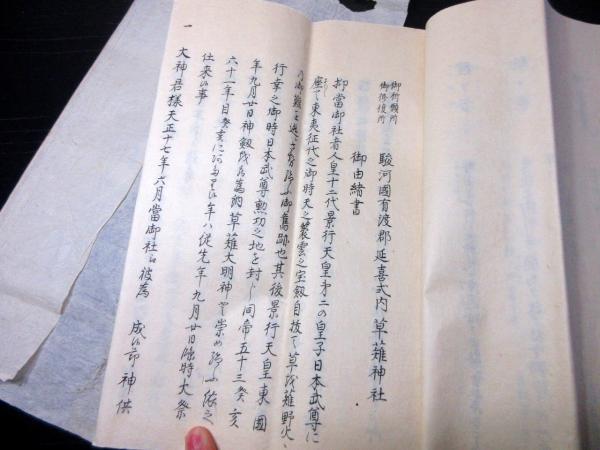 御祈願所
御修復所
駿河國有渡郡延喜式内草薙神社
御由緒書
抑當御社者人皇十二代景行天皇第二の皇子日本武尊に
座て東夷征伐之御時天之叢雲之宝劔自抜て草を薙野火
の御難を御舊跡也其後景行天皇東國
行幸之御時日本武尊勲功之地を封し同帝五十三癸亥
年九月廿日神劔を為納草薙大明神と崇め給ふ依之
六十一年目癸亥に年八従先年九月廿日臨時大祭
仕来候事
一
大神君様天正十七年六月當御社に被為 成候節神供